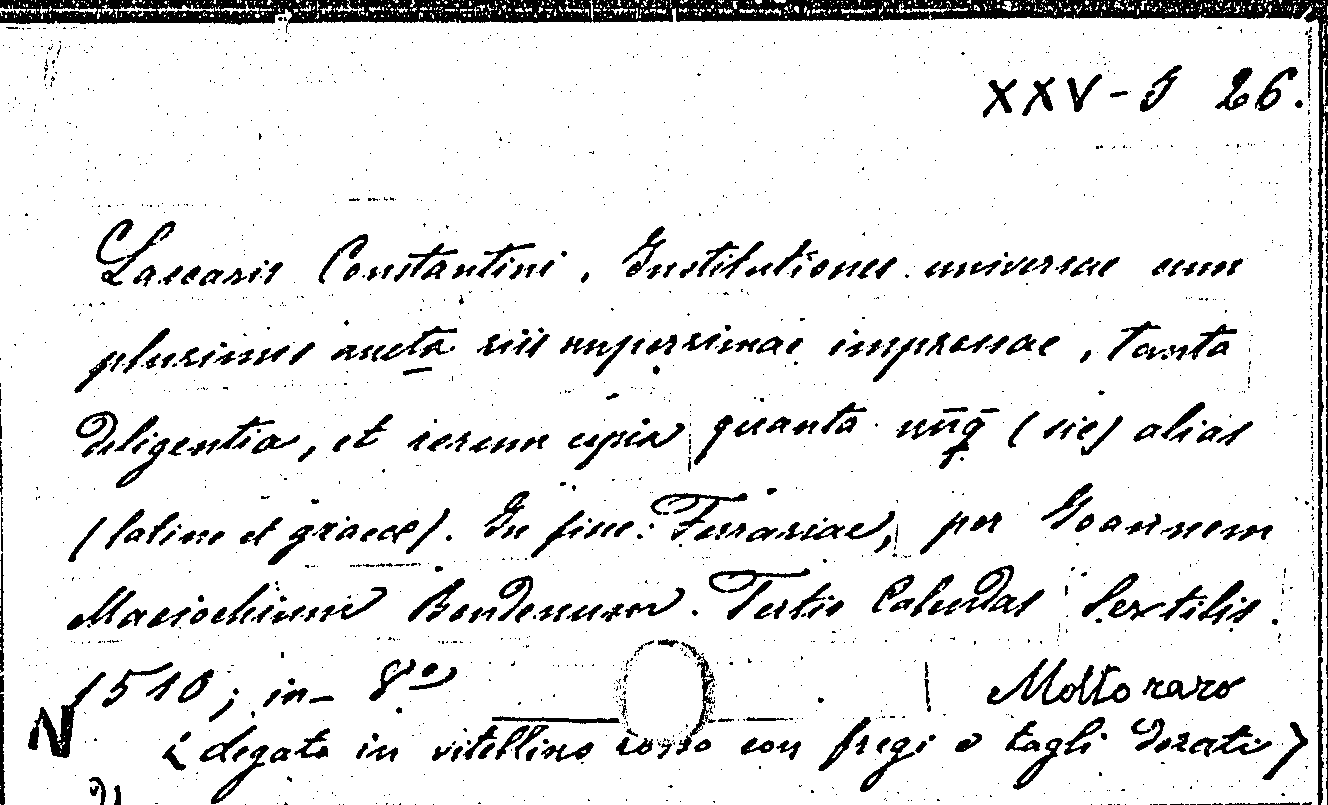 XXV-J 26.
Lascaris Constantini, Institutiones universae cum
plurimis aucta riis nuperrimae impressae, tanta
diligentia, et rerum copia quanta nūq̄ (sic) alias
(latine et graece). In fine: Ferrariae, per Joannem
Maciochium Bondenum. Tertio Calendas Sextilis.
1510; in-8º Molto raro
N (Legato in vitellino rosso con fregi e tagli dorati)